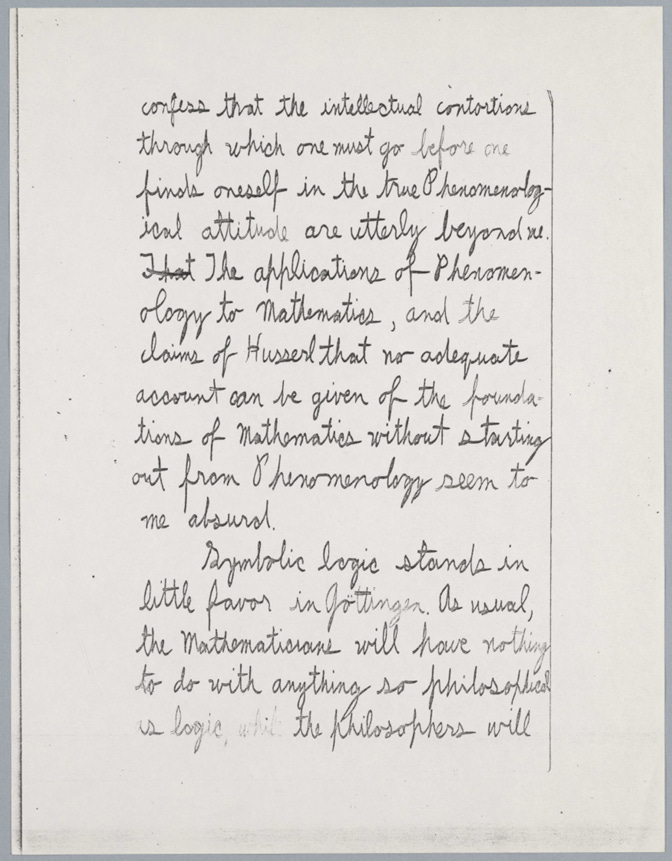 confess that the intellectual contortions
through which one must go before one
finds oneself in the true Phenomenolog-
ical attitude are utterly beyond me.
That The applications of Phenomen-
ology to Mathematics, and the
claims of Husserl that no adequate
account can be given of the founda-
tions of Mathematics without starting
out from Phenomenology seem to
me absurd.
Symbolic logic stands in
little favor in Göttingen. As usual,
the Mathematicians will have nothing
to do with anything so philosophical
as logic, while the philosophers will